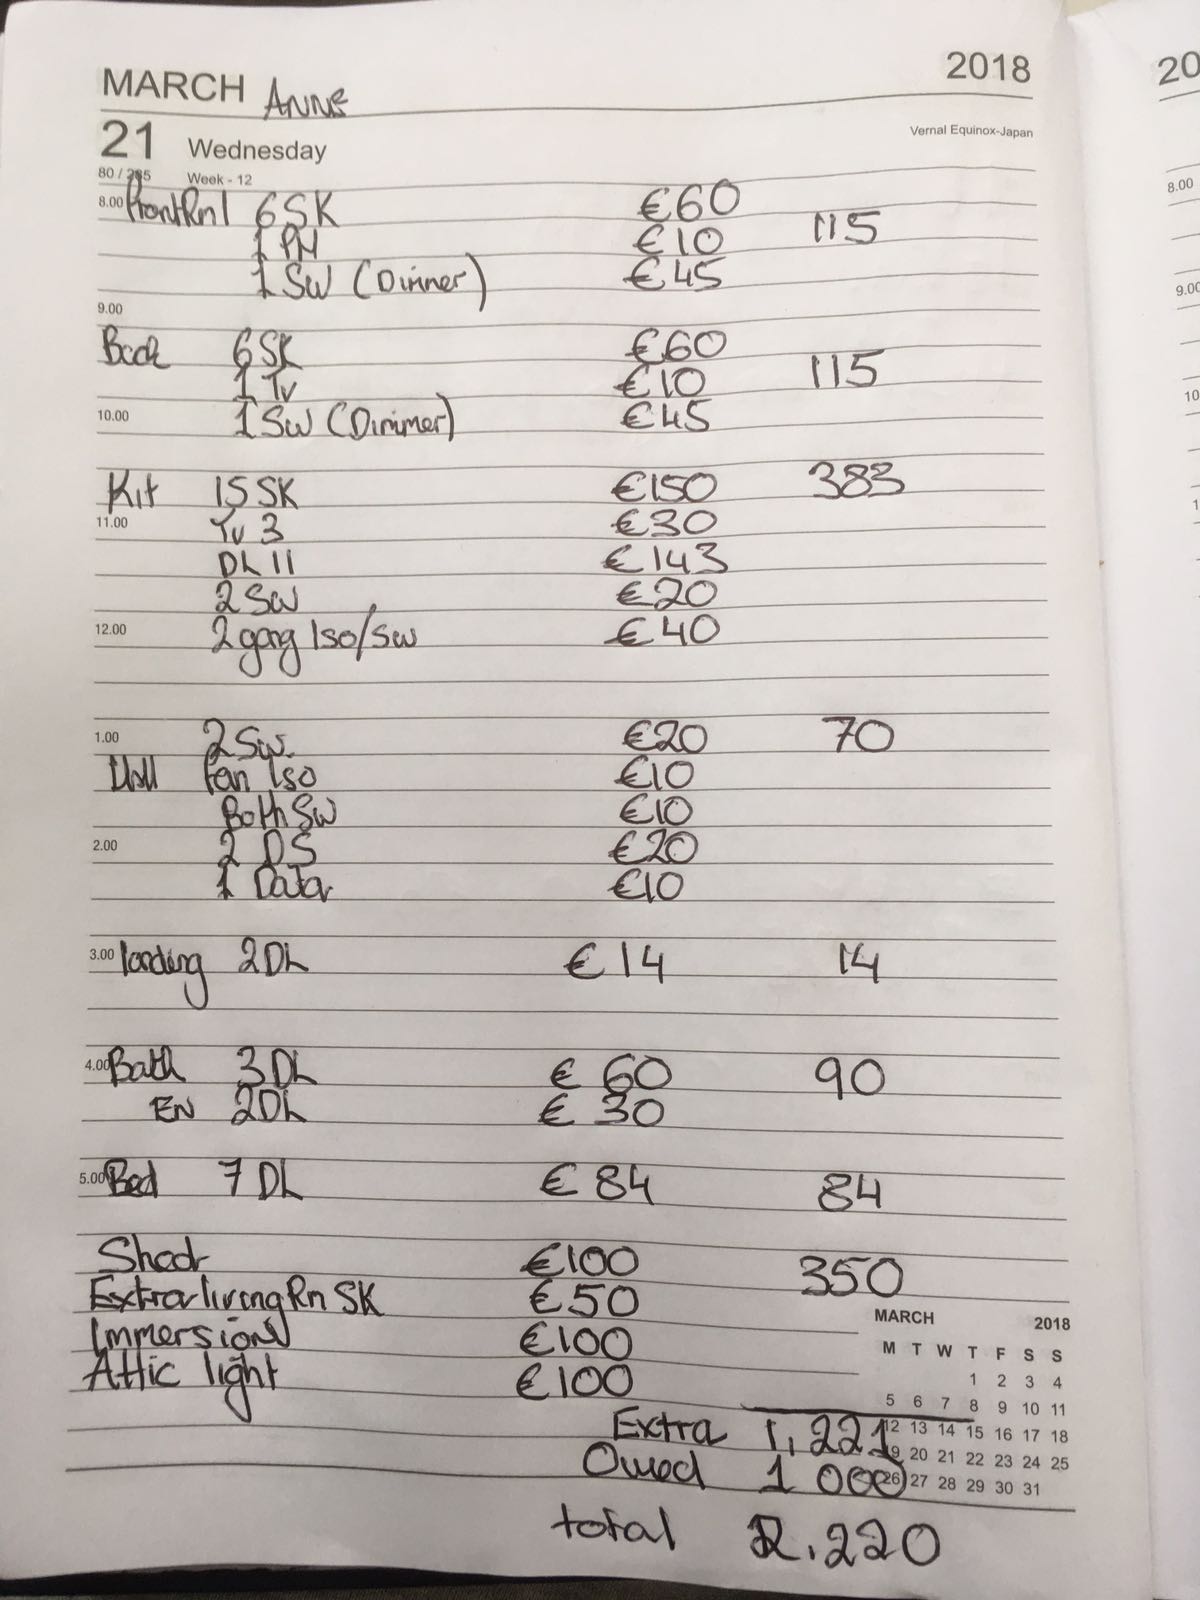 MARCH ANNE 2018
21 Wednesday Vernal Equinox-Japan
80 / 285 Week - 12
8.00 FrontRm1 6 SK €60
1 PH €10 115
1 SW (Dimmer) €45
9.00
Back 6 SK €60
1 TV €10 115
10.00 1 SW (Dimmer) €45
Kit 15 SK €150 383
11.00 TV 3 €30
DL 11 €143
2 SW €20
12.00 2 gang Iso/SW €40
1.00 2 SW. €20 70
Hall fan Iso €10
Both SW €10
2.00 2 DS €20
1 Data €10
3.00 landing 2DL €14 14
4.00 Bath 3 DL €60 90
EN 2DL €30
5.00 Bed 7 DL €84 84
Shed €100 350
Extra living Rm SK €50
Immersion €100
Attic light €100
MARCH 2018
M T W T F S S
1 2 3 4
5 6 7 8 9 10 11
12 13 14 15 16 17 18
19 20 21 22 23 24 25
26 27 28 29 30 31
Extra 1,221
Owed 1 000
total 2.220
20
8.00
9.00
10